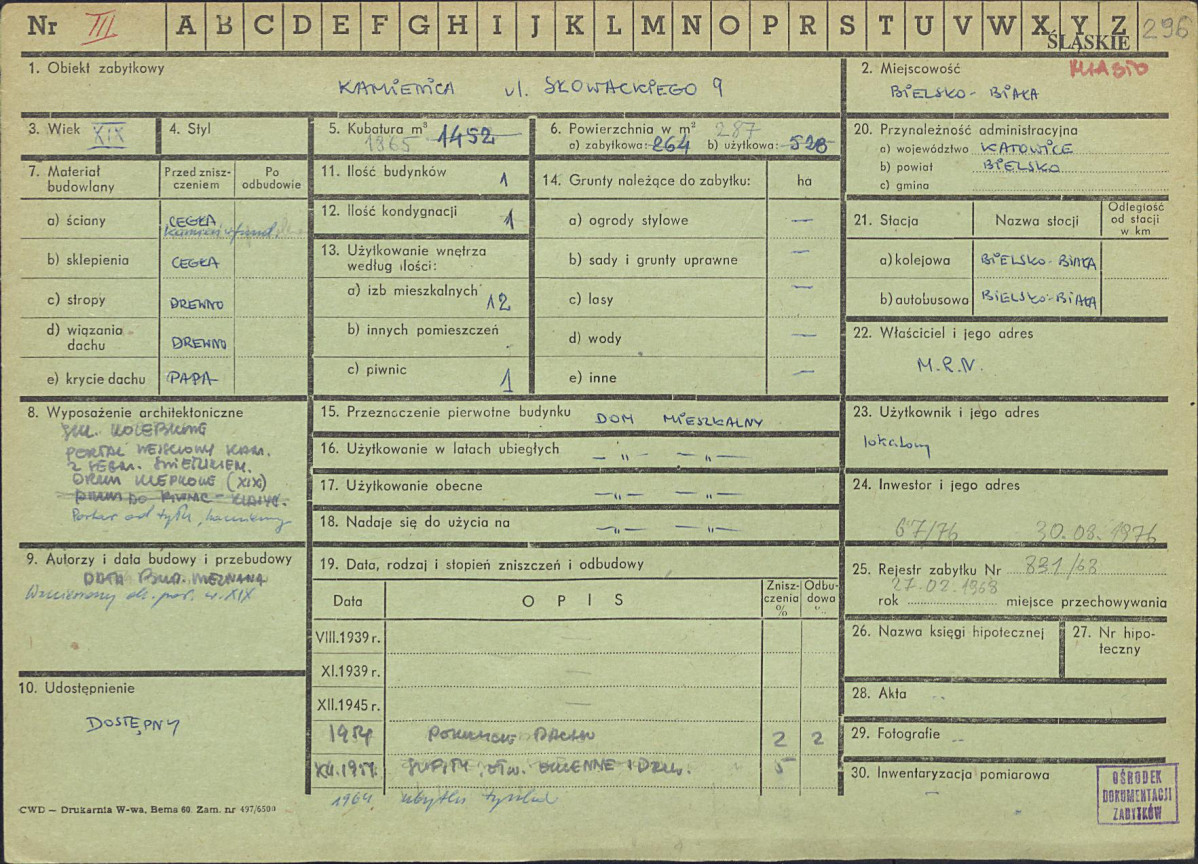 Nr III A B C D E F G H I J K L M N O P R S T U V W X Y Z 296
ŚLĄSKIE
1. Obiekt zabytkowy
KAMIENICA ul. SŁOWACKIEGO 9
2. Miejscowość MIASTO
BIELSKO-BIAŁA
3. Wiek XIX
4. Styl
5. Kubatura m³ 1452
1865
6. Powierzchnia w m² 287
a) zabytkowa: 264 b) użytkowa: 528
7. Materiał budowlany
Przed zniszczeniem
Po odbudowie
a) ściany CEGŁA
kamień fund.
b) sklepienia CEGŁA
c) stropy DREWNO
d) wiązania dachu DREWNO
e) krycie dachu PAPA
8. Wyposażenie architektoniczne
SKL. KOLEBKOWE
PORTAL WEJŚCIOWY KAM.
Z SEGM. ŚWIETLIKIEM.
DRZWI KLEPKOWE (XIX)
DRZWI DO PIWNIC
Portal od tyłu, kamienny
9. Autorzy i data budowy i przebudowy
DATA BUD. NIEZNANA
Wzniesiony ok. poł. w. XIX
10. Udostępnienie
DOSTĘPNY
11. Ilość budynków 1
12. Ilość kondygnacji 1
13. Użytkowanie wnętrza według ilości:
a) izb mieszkalnych 12
b) innych pomieszczeń
c) piwnic 1
14. Grunty należące do zabytku: ha
a) ogrody stylowe —
b) sady i grunty uprawne —
c) lasy —
d) wody —
e) inne —
15. Przeznaczenie pierwotne budynku DOM MIESZKALNY
16. Użytkowanie w latach ubiegłych —„— —„—
17. Użytkowanie obecne —„— —„—
18. Nadaje się do użycia na —„— —„—
19. Data, rodzaj i stopień zniszczeń i odbudowy
Data OPIS Zniszczenia % Odbudowa "..
VIII.1939 r. —
XI.1939 r. —
XII.1945 r. —
1954 POKRYCIE DACHU 2 2
XII.1959. SUFITY, OTW. OKIENNE I DRZW. 5
1964 ubytki tynków
20. Przynależność administracyjna
a) województwo KATOWICE
b) powiat BIELSKO
c) gmina
21. Stacja Nazwa stacji Odległość od stacji w km
a) kolejowa BIELSKO-BIAŁA
b) autobusowa BIELSKO-BIAŁA
22. Właściciel i jego adres
M.R.N.
23. Użytkownik i jego adres
lokatorzy
24. Inwestor i jego adres
67/76 30.08.1976
25. Rejestr zabytku Nr 831/68
27.02.1968
rok miejsce przechowywania
26. Nazwa księgi hipotecznej
27. Nr hipoteczny
28. Akta
29. Fotografie
30. Inwentaryzacja pomiarowa
OŚRODEK
DOKUMENTACJI
ZABYTKÓW
CWD — Drukarnia W-wa, Bema 60. Zam. nr 497/6500